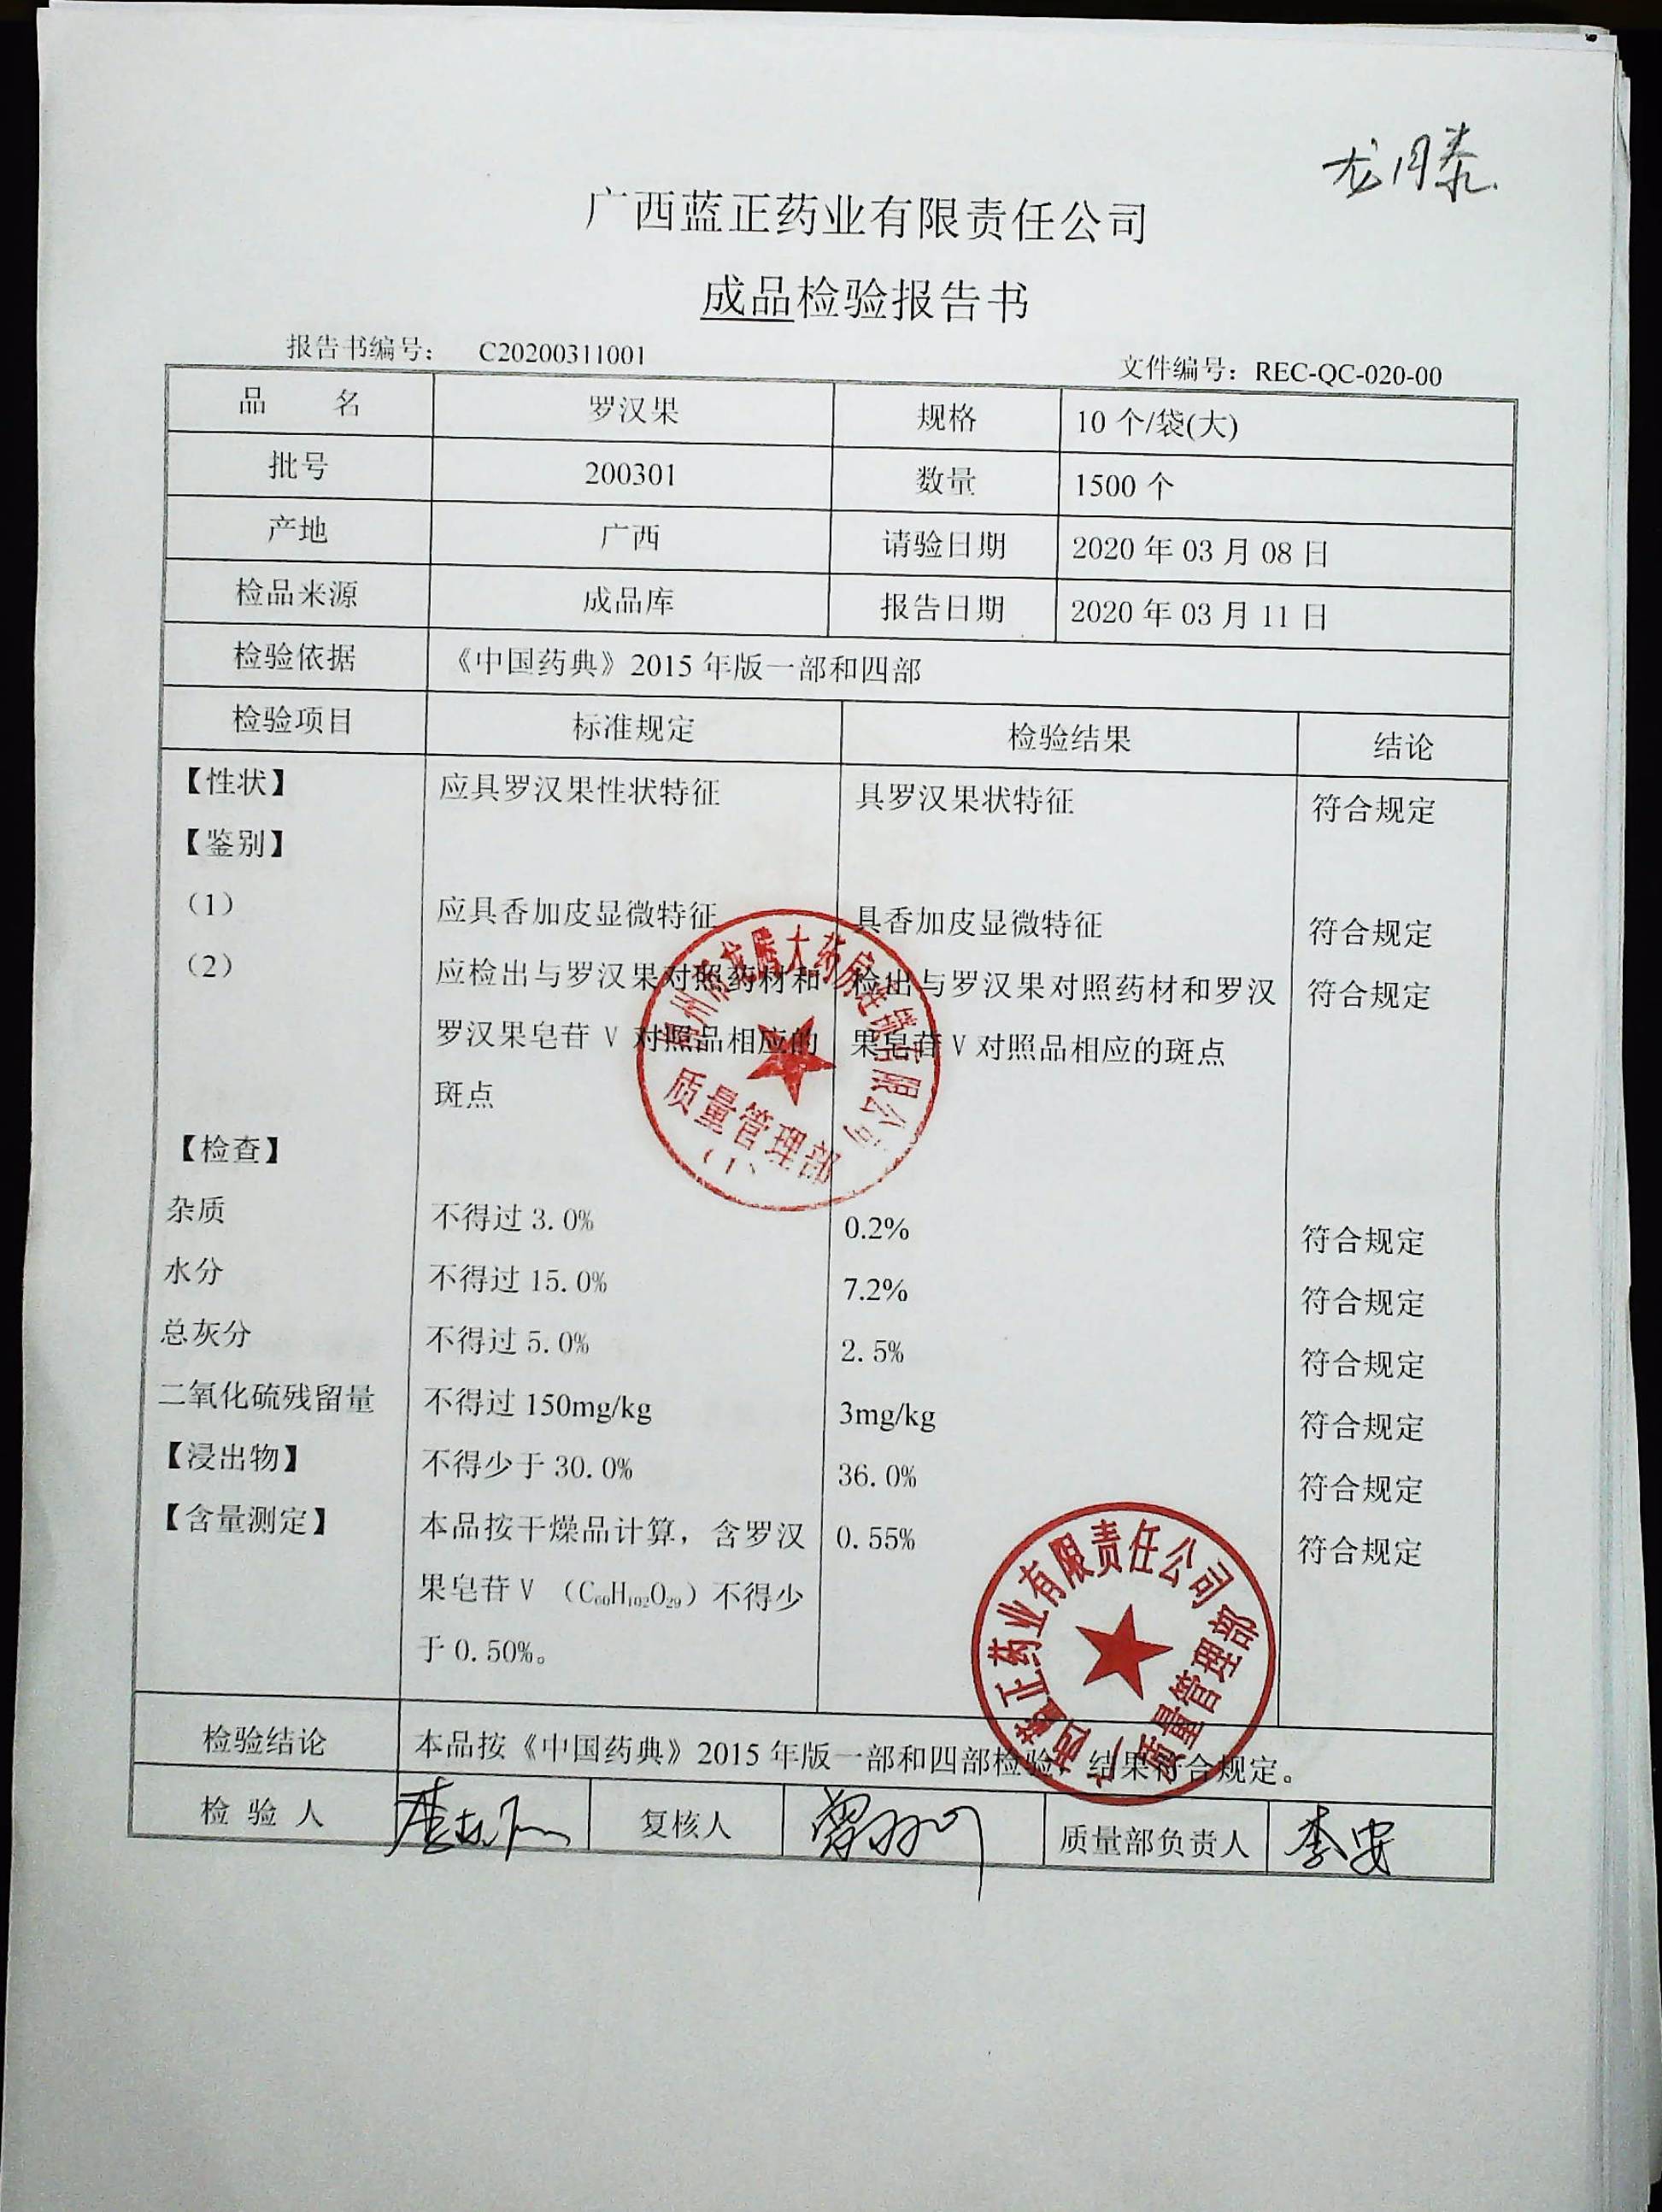 龙腾
广西蓝正药业有限责任公司
成品检验报告书
报告书编号： C20200311001 文件编号：REC-QC-020-00
品 名 罗汉果 规格 10 个/袋(大)
批号 200301 数量 1500 个
产地 广西 请验日期 2020 年 03 月 08 日
检品来源 成品库 报告日期 2020 年 03 月 11 日
检验依据 《中国药典》2015 年版一部和四部
检验项目 标准规定 检验结果 结论
【性状】 应具罗汉果性状特征 具罗汉果状特征 符合规定
【鉴别】
（1） 应具香加皮显微特征 具香加皮显微特征 符合规定
（2） 应检出与罗汉果对照药材和 检出与罗汉果对照药材和罗汉 符合规定
罗汉果皂苷 V 对照品相应的 果皂苷 V 对照品相应的斑点
斑点
【检查】
杂质 不得过 3.0% 0.2% 符合规定
水分 不得过 15.0% 7.2% 符合规定
总灰分 不得过 5.0% 2.5% 符合规定
二氧化硫残留量 不得过 150mg/kg 3mg/kg 符合规定
【浸出物】 不得少于 30.0% 36.0% 符合规定
【含量测定】 本品按干燥品计算，含罗汉 0.55% 符合规定
果皂苷 V （C₆₀H₁₀₂O₂₉）不得少
于 0.50%。
检验结论 本品按《中国药典》2015 年版一部和四部检验，结果符合规定。
检 验 人 复核人 质量部负责人 李安
州市龙腾大药房连锁有限公司
质量管理部
（1）
广西蓝正药业有限责任公司
质量管理部